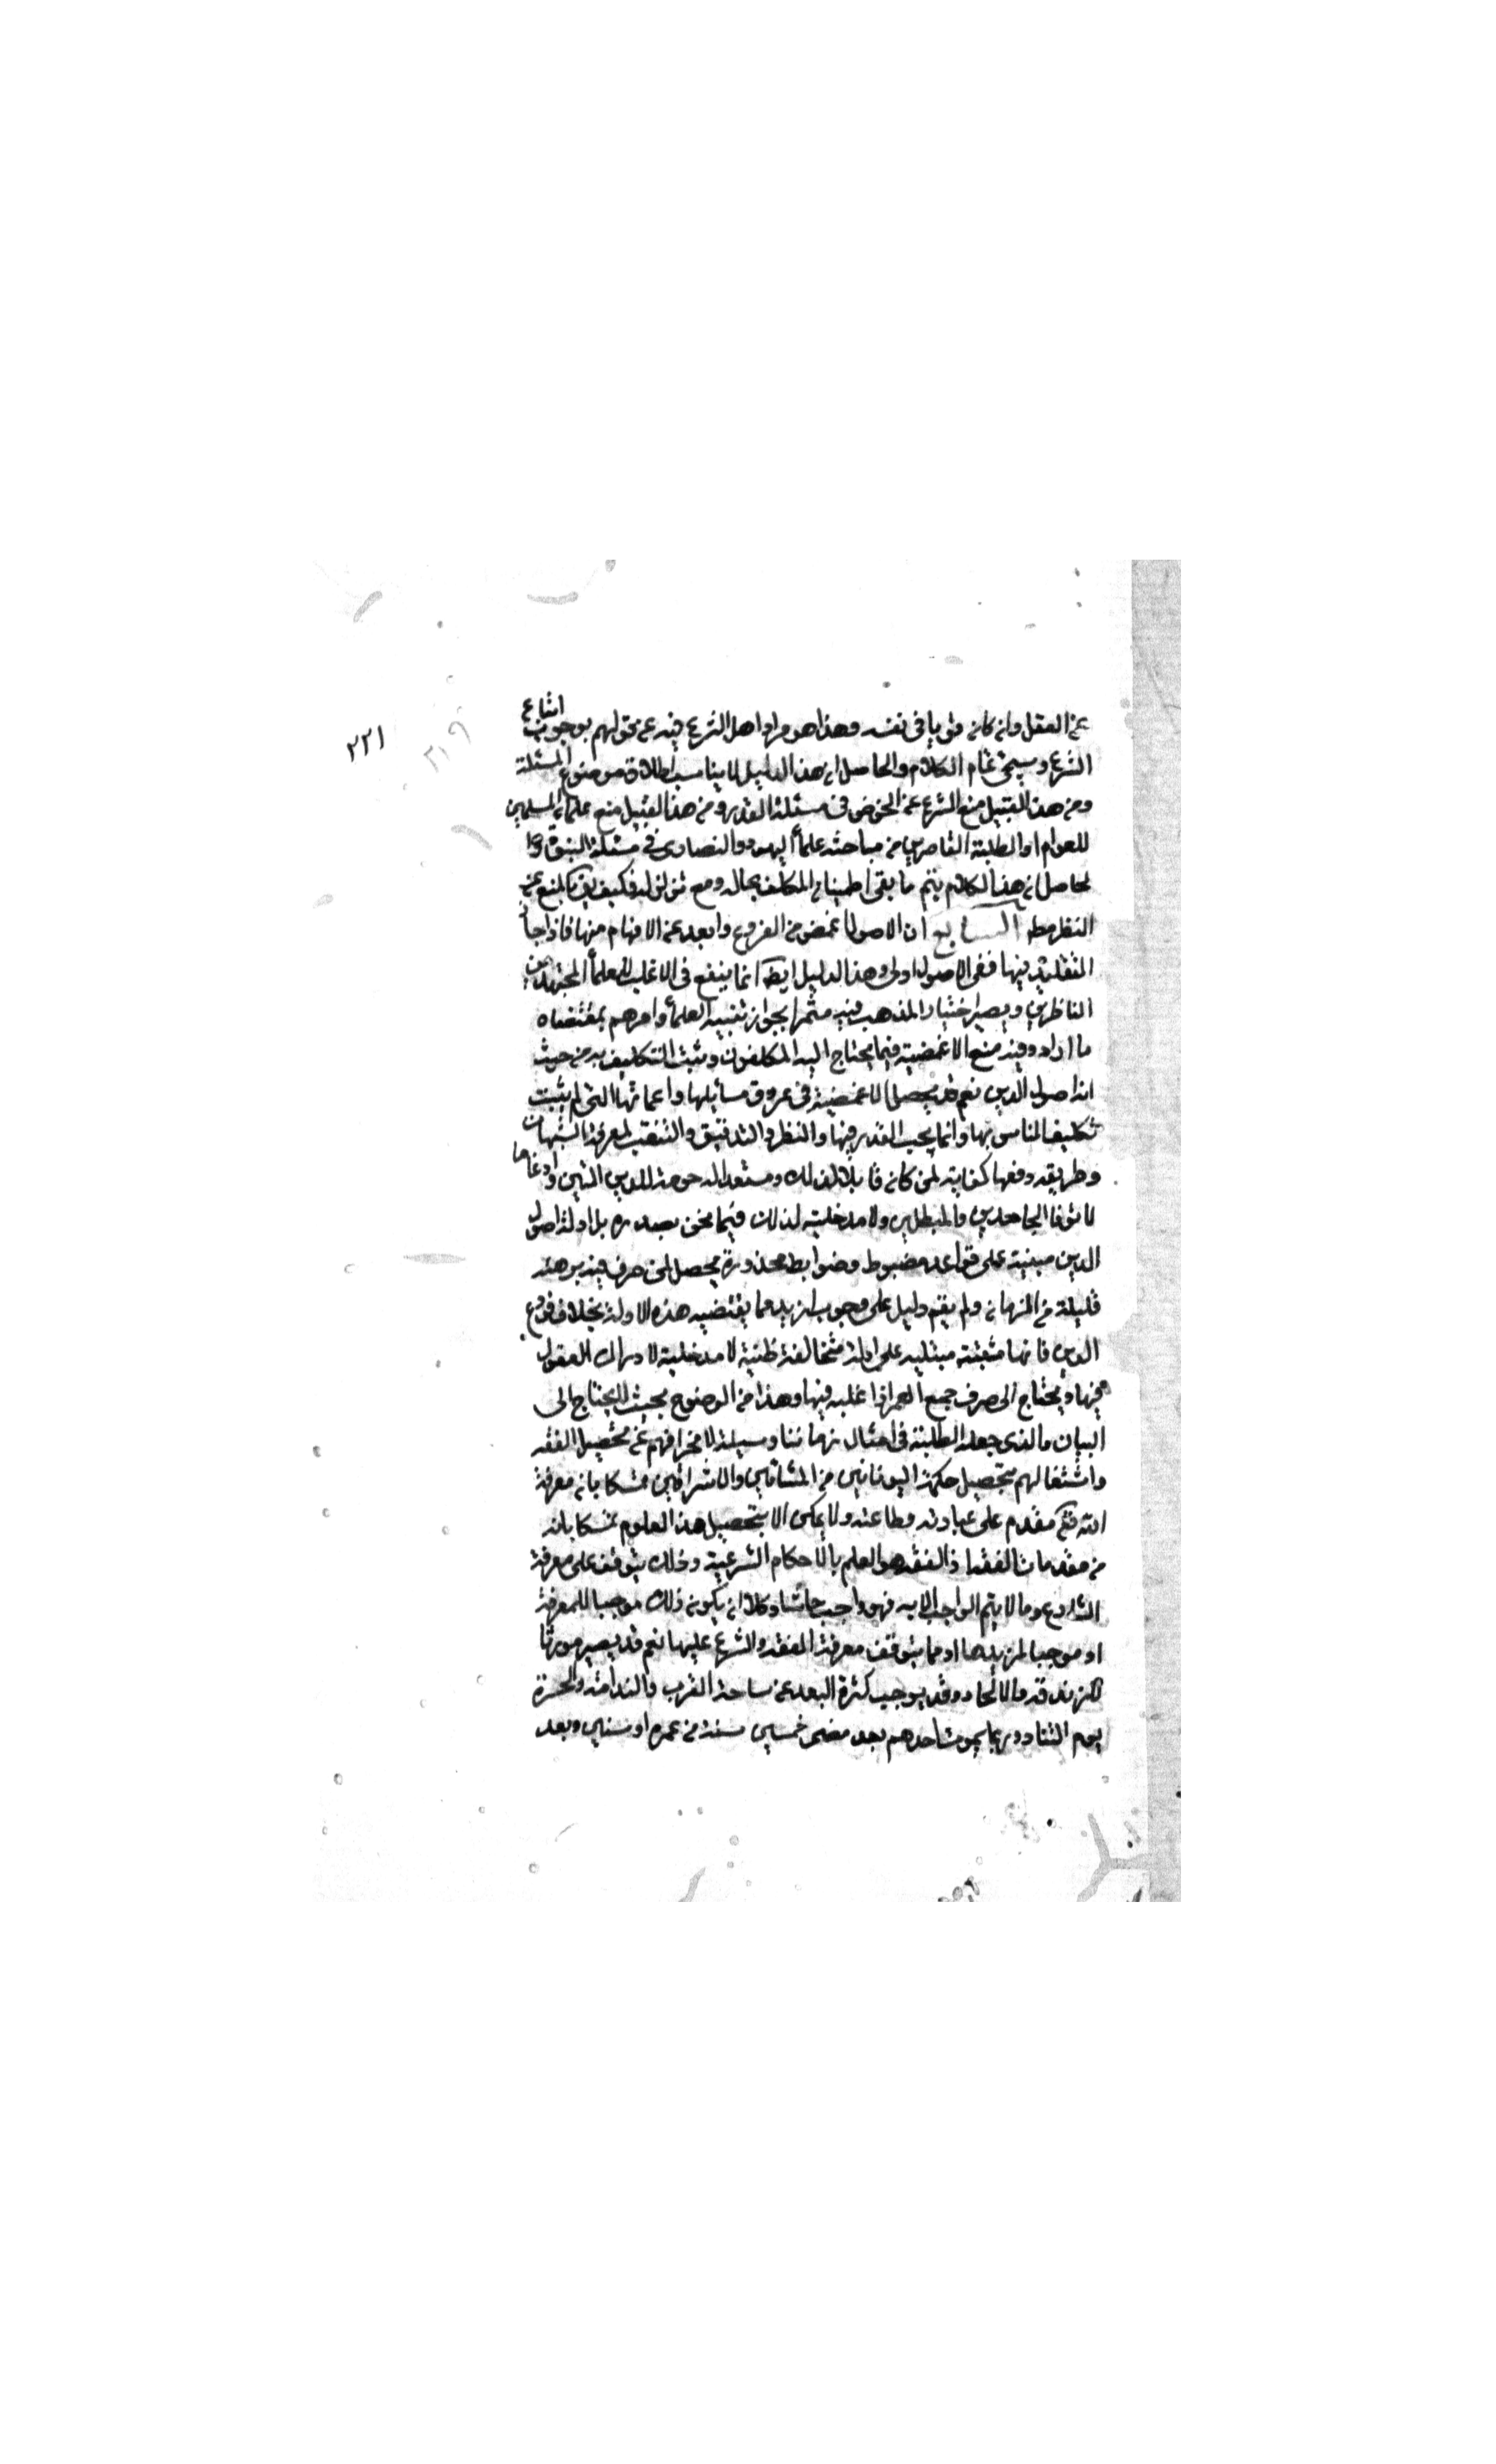 عن العقل وان كان قويا في نفسه وهذا هو مراد اهل الشرع فيه عن قولهم بوجوب اتباع
الشرع وسيجئ تمام الكلام والحاصل ان هذا الدليل لا يناسب اطلاق موضوع المسئلة
ومن هذا القبيل منع الشرع عن الخوض في مسئلة القدر ومن هذا القبيل منع علماء المسلمين
للعوام او الطلبة القاصرين من مباحثه علمآ اليهود والنصارى في مسئلة النبوة وا
لحاصل ان هذا الكلام يتم ما بقى اطمينان المكلف بحاله ومع تزلزله فكيف يؤمر بالمنع عن
النظر مط السابع ان الاصول اغمض من الفروع وابعد عن الافهام منها فاذا جاز
التقليد فيها ففى الاصول اولى وهذا الدليل ايضا انما ينفع في الاغلب للعلمآ المجتهدين
الناظرين ويصير اختيار المذهب فيه مثمرا بجواز تنبيه العلمآ وامرهم بمقتضاه
ما اداه وفيه منع الاغمضية فيما يحتاج اليه المكلفون وثبت التكليف به من حيث
انه اصول الدين نعم قد يحصل الاغمضية في عروق مسائلها واعماقها التى لم يثبت
تكليف الناس بها وانما يجب التدبر فيها والنظر والتدقيق والتنقيب لمعرفة الشبهات
وطريقه دفعها كفاية لمن كان قابلا لذلك ومستعدا له حومة للدين المتين وارغاما
لانوف الجاحدين والمبطلين ولا مدخلية لذلك فيما نحن بصدده بل ادلة اصول
الدين مبنية على قواعد مضبوط وضوابط محذورة يحصل لمن صرف فيه برهة
قليلة من الزمان ولم يقم دليل على وجوب ازيد مما يقتضيه هذه الادلة بخلاف فروع
الدين فانها متعبة مبتنيه على ادلة متخالفة ظنية لا مدخلية لادراك العقول
فيها ويحتاج الى صرف جميع العمر او اغلبه فيها وهذا من الوضوح بحيث لا يحتاج الى
البيان والذى جعله الطلبة في امثال زماننا وسيلة لانحرافهم عن تحصيل الفقه
واشتغالهم بتحصيل حكمة اليونانيين من المشائين والاشراقيين متمسكا بان معرفة
الله تع مقدم على عبادته وطاعته ولا يمكن الا بتحصيل هذا العلوم تمسكا بانه
من مقدمات الفقه اذ الفقه هو العلم بالاحكام الشرعية وذلك يتوقف على معرفة
الشارع وما لا يتم الواجب الا به فهو واجب حاشا وكلا ان يكون ذلك موجبا للمعرفة
او موجبا لمزيدها او مما يتوقف معرفة الفقه والشرع عليها نعم قد يصير مورثا
للزندقة والالحاد وقد يوجب كثرة البعد عن ساحة القرب والندامة والحسرة
يوم التناد وربما يجئ احدهم بعد مضى خمسين سنة من عمره او ستين وبعد
٢٢١
٢١٩